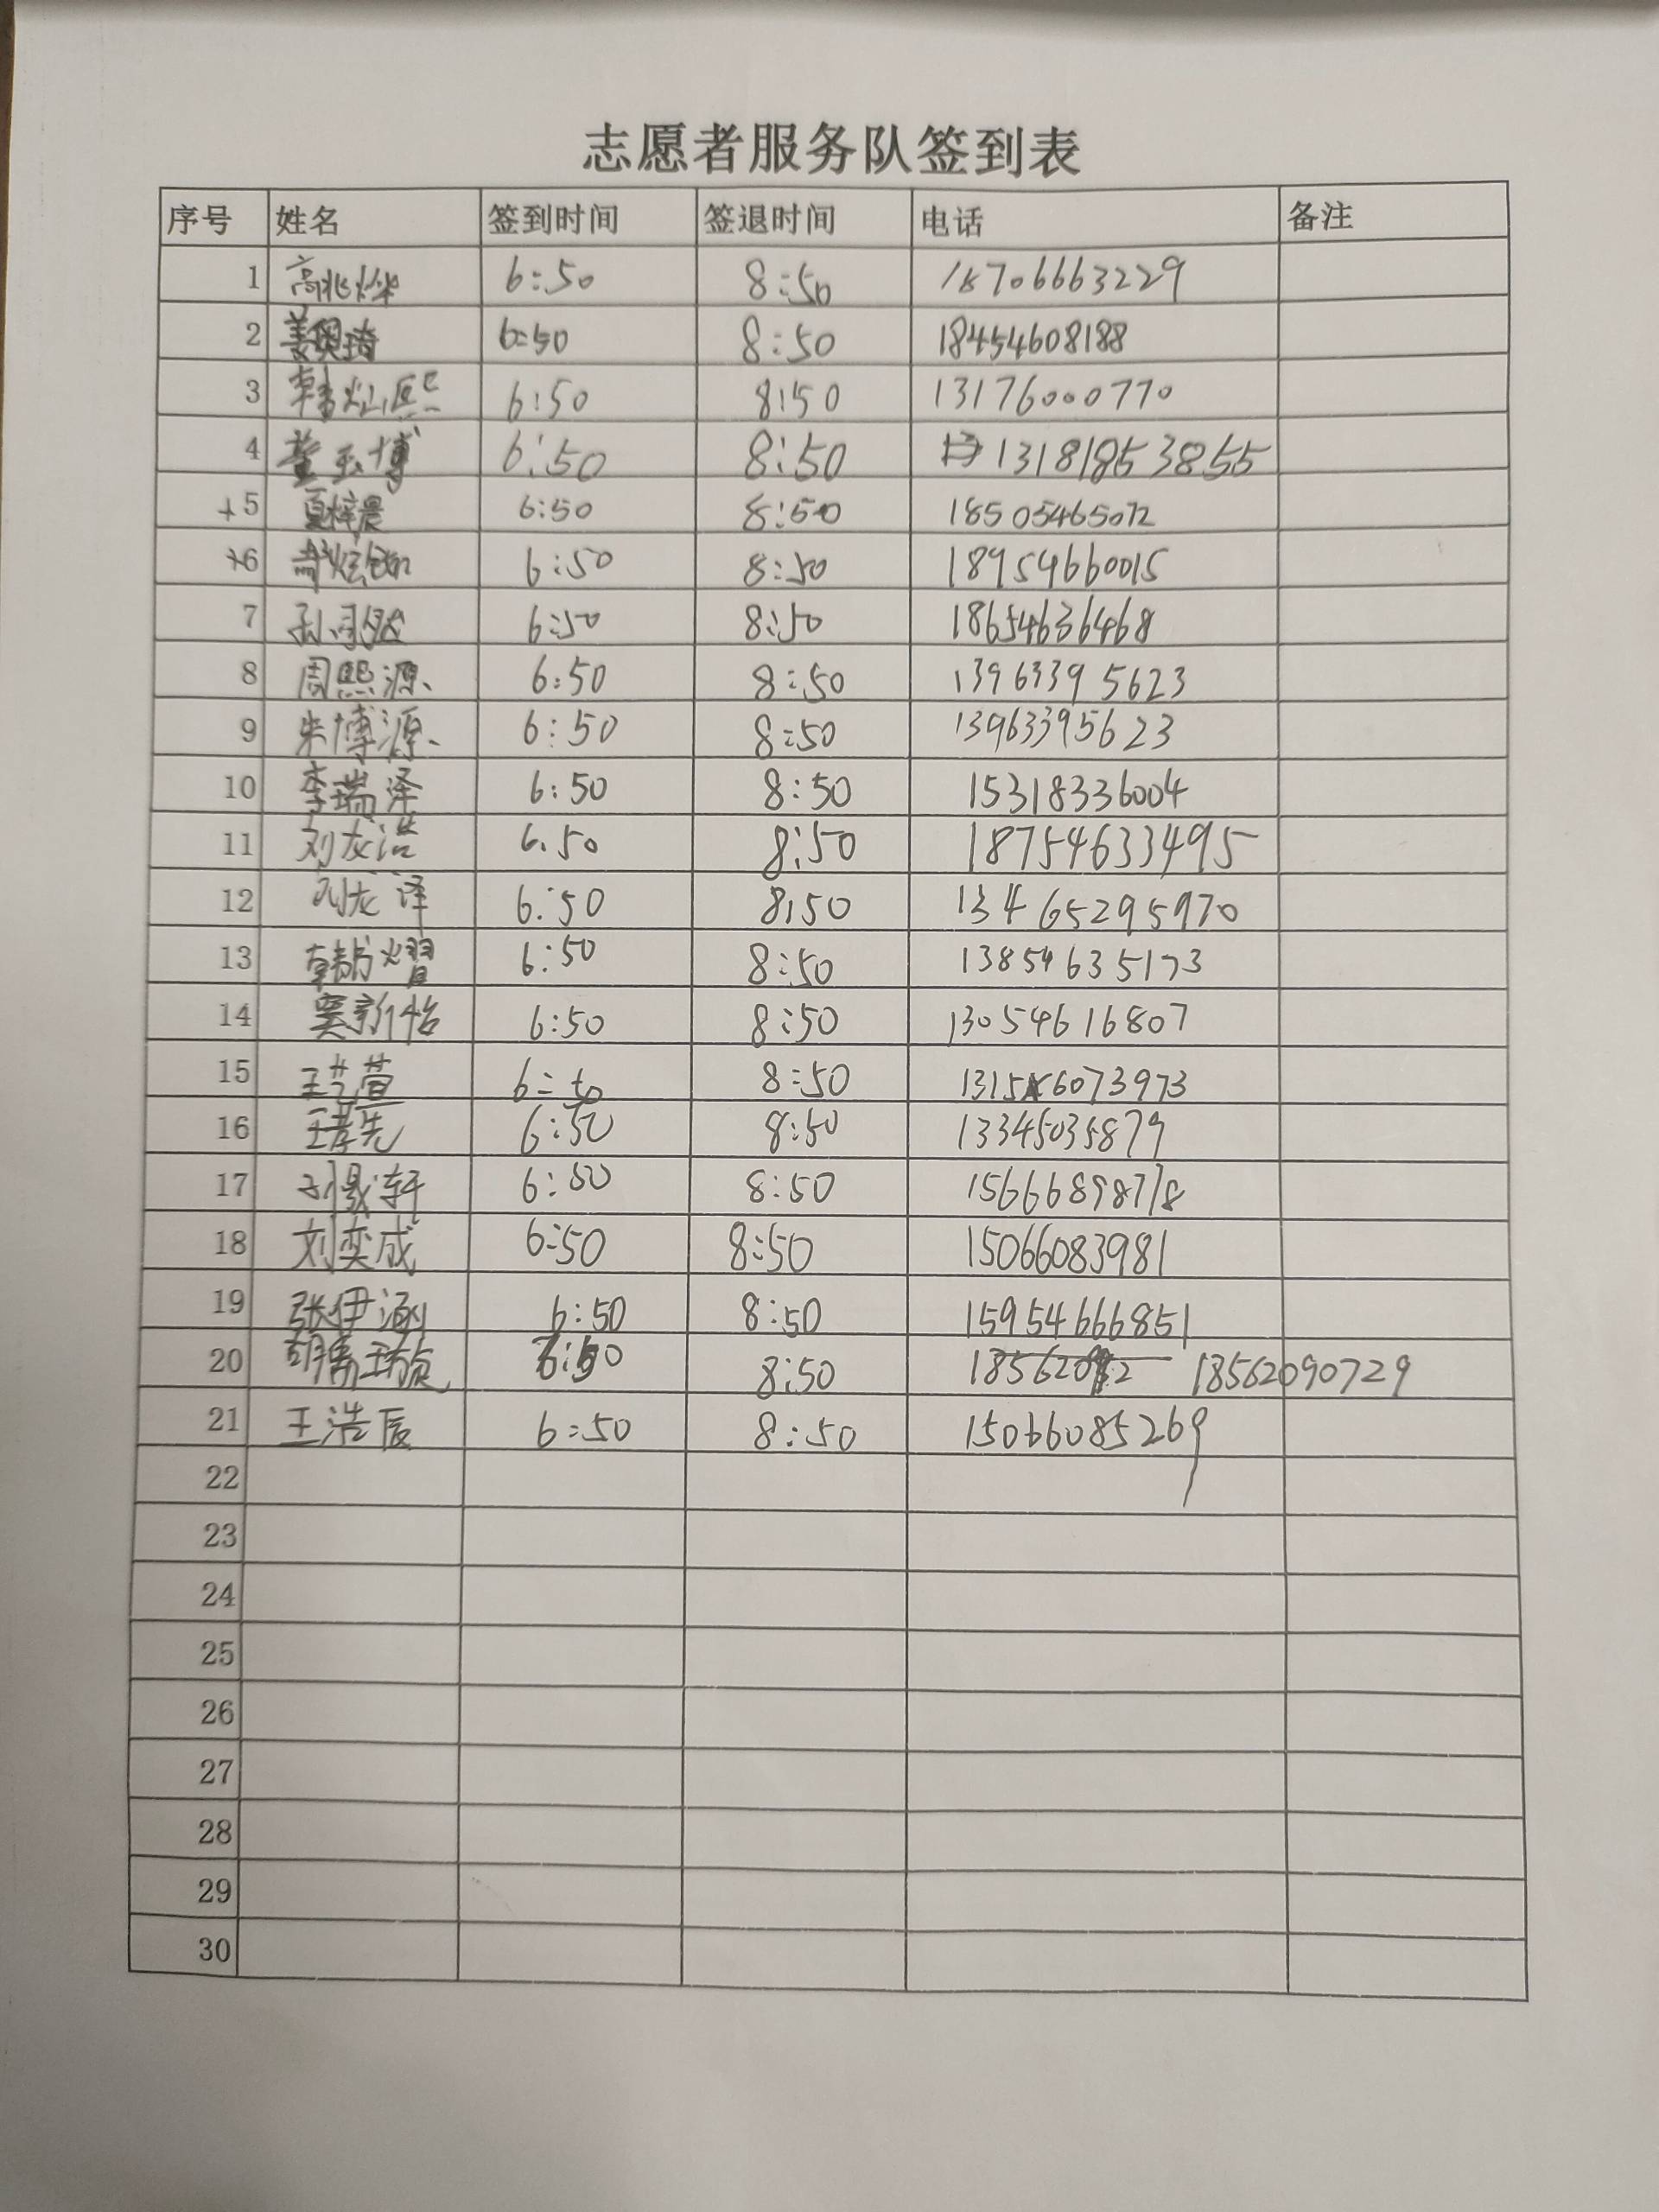 志愿者服务队签到表
序号 姓名 签到时间 签退时间 电话 备注
1 高兆烨 6:50 8:50 18706663229
2 姜琪琦 6:50 8:50 18454608188
3 韩灿熙 6:50 8:50 13176000770
4 董玉博 6:50 8:50 13181853855
5 夏梓晨 6:50 8:50 18505465072
6 6:50 8:50 18954660015
7 6:50 8:50 18654636468
8 周熙源 6:50 8:50 13963395623
9 朱博源 6:50 8:50 13963395623
10 李瑞泽 6:50 8:50 15318336004
11 刘友浩 6.50 8:50 18754633495
12 刘龙泽 6:50 8:50 13465295970
13 6:50 8:50 13854635173
14 窦新怡 6:50 8:50 13054616807
15 王艺萱 6:50 8:50 13156073973
16 王孝先 6:50 8:50 13345035879
17 6:50 8:50 15666898778
18 刘奕成 6:50 8:50 15066083981
19 张伊涵 6:50 8:50 15954666851
20 胡禹璇 6:50 8:50 18562090729
21 王浩辰 6:50 8:50 15066085269
22
23
24
25
26
27
28
29
30